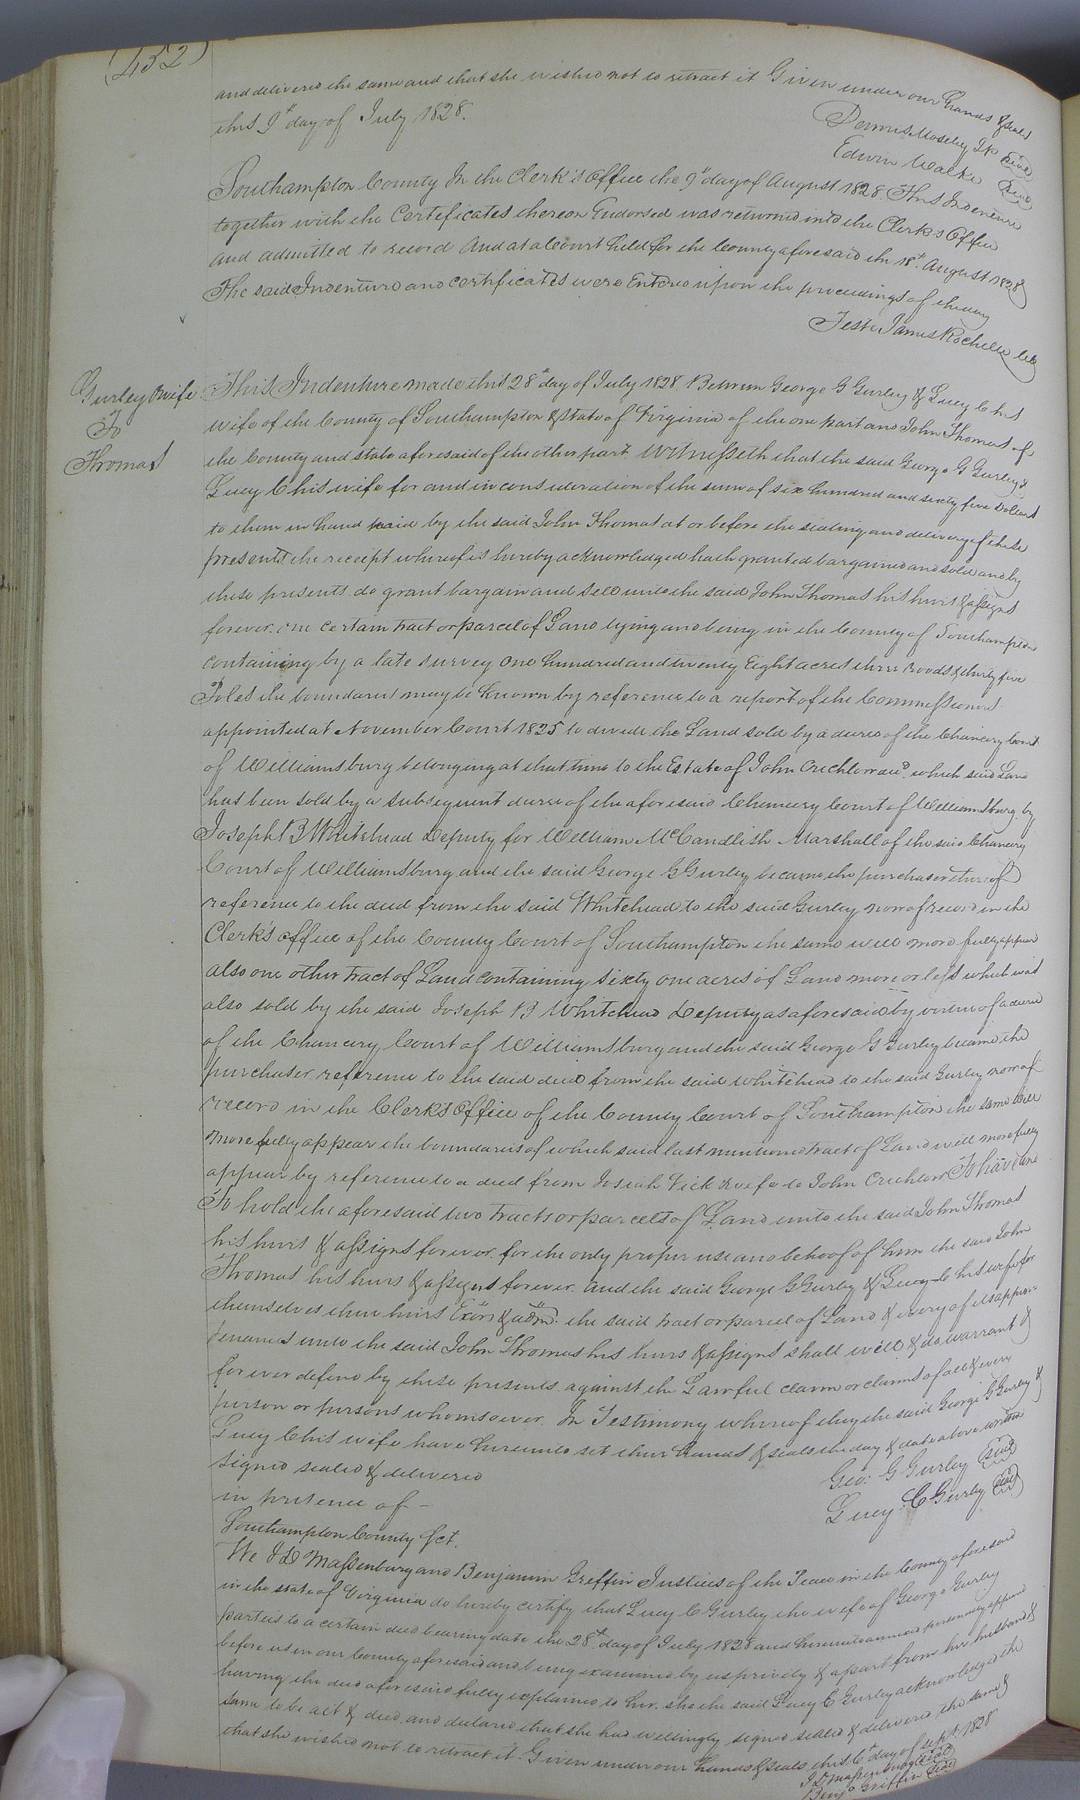 (452)
and delivered the same and that she wished not to retract it Given under our hands & seals
this 9th day of July 1828.
Dennis Moseley JP Seal
Edwin Walke Seal
Southampton County In the Clerk's Office the 9th day of August 1828. This Indenture
together with the Certificates thereon Endorsed was returned into the Clerks Office
and admitted to record And at a Court held for the County aforesaid the 18th August 1828
The said Indenture and certificates were Entered upon the proceedings of the day
Teste James Rochelle Clk
Gurley & wife
To
Thomas
This Indenture made this 28th day of July 1828 Between George G Gurley & Lucy C his
wife of the County of Southampton & State of Virginia of the one part and John Thomas of
the County and state aforesaid of the other part Witnesseth that the said George G Gurley &
Lucy C his wife for and in consideration of the sum of six hundred and sixty five Dollars
to them in hand paid by the said John Thomas at or before the sealing and delivery of these
presents the receipt whereof is hereby acknowledged hath granted bargained and sold and by
these presents do grant bargain and sell unto the said John Thomas his heirs & assigns
forever one certain tract or parcel of Land lying and being in the County of Southampton
containing by a late survey one hundred and twenty Eight acres three roods & thirty five
Poles the boundaries may be known by reference to a report of the Commissioners
appointed at November Court 1825 to divide the Land sold by a decree of the Chancery Court
of Williamsburg belonging at that time to the Estate of John Crichlow decd. which said Land
has been sold by a subsequent decree of the aforesaid Chancery Court of Williamsburg by
Joseph B Whitehead Deputy for William McCandlish Marshall of the said Chancery
Court of Williamsburg and the said George G Gurley became the purchaser thereof
reference to the deed from the said Whitehead to the said Gurley now of record in the
Clerk's office of the County Court of Southampton the same will more fully appear
also one other tract of Land containing sixty one acres of Land more or less which was
also sold by the said Joseph B Whitehead Deputy as aforesaid by virtue of a decree
of the Chancery Court of Williamsburg and the said George G Gurley became the
purchaser reference to the said deed from the said Whitehead to the said Gurley now of
record in the Clerks Office of the County Court of Southampton the same will
more fully appear the boundaries of which said last mentioned tract of Land will more fully
appear by reference to a deed from Josiah Vick & wife to John Crichlow To have and
To hold the aforesaid two tracts or parcels of Land unto the said John Thomas
his heirs & assigns forever for the only proper use and behoof of him the said John
Thomas his heirs & assigns forever. And the said George G Gurley & Lucy C his wife for
themselves their heirs Exors & admrs the said tract or parcel of Land & every of its appur-
tenances unto the said John Thomas his heirs & assigns shall will & do warrant &
forever defend by these presents against the Lawful claim or claims of all & every
person or persons whomsoever. In Testimony whereof they the said George G Gurley &
Lucy C his wife have hereunto set their hands & seals the day & date above written
Signed sealed & delivered
in presence of —
Geo: G Gurley Seal
Lucy C Gurley Seal
Southampton County Sct.
We J D Massenburg and Benjamin Griffin Justices of the Peace in the County aforesaid
in the state of Virginia do hereby certify that Lucy C Gurley the wife of George Gurley
parties to a certain deed bearing date the 28th day of July 1828 and hereunto annexed personally appeared
before us in our County aforesaid and being examined by us privily & apart from her husband &
having the deed aforesaid fully explained to her. she the said Lucy C Gurley acknowledged the
same to be act & deed and declared that she had willingly signed sealed & delivered the same &
that she wished not to retract it Given under our hands & seals this 6th day of Sept. 1828
J D Massenburg Seal
Benjn Griffin Seal